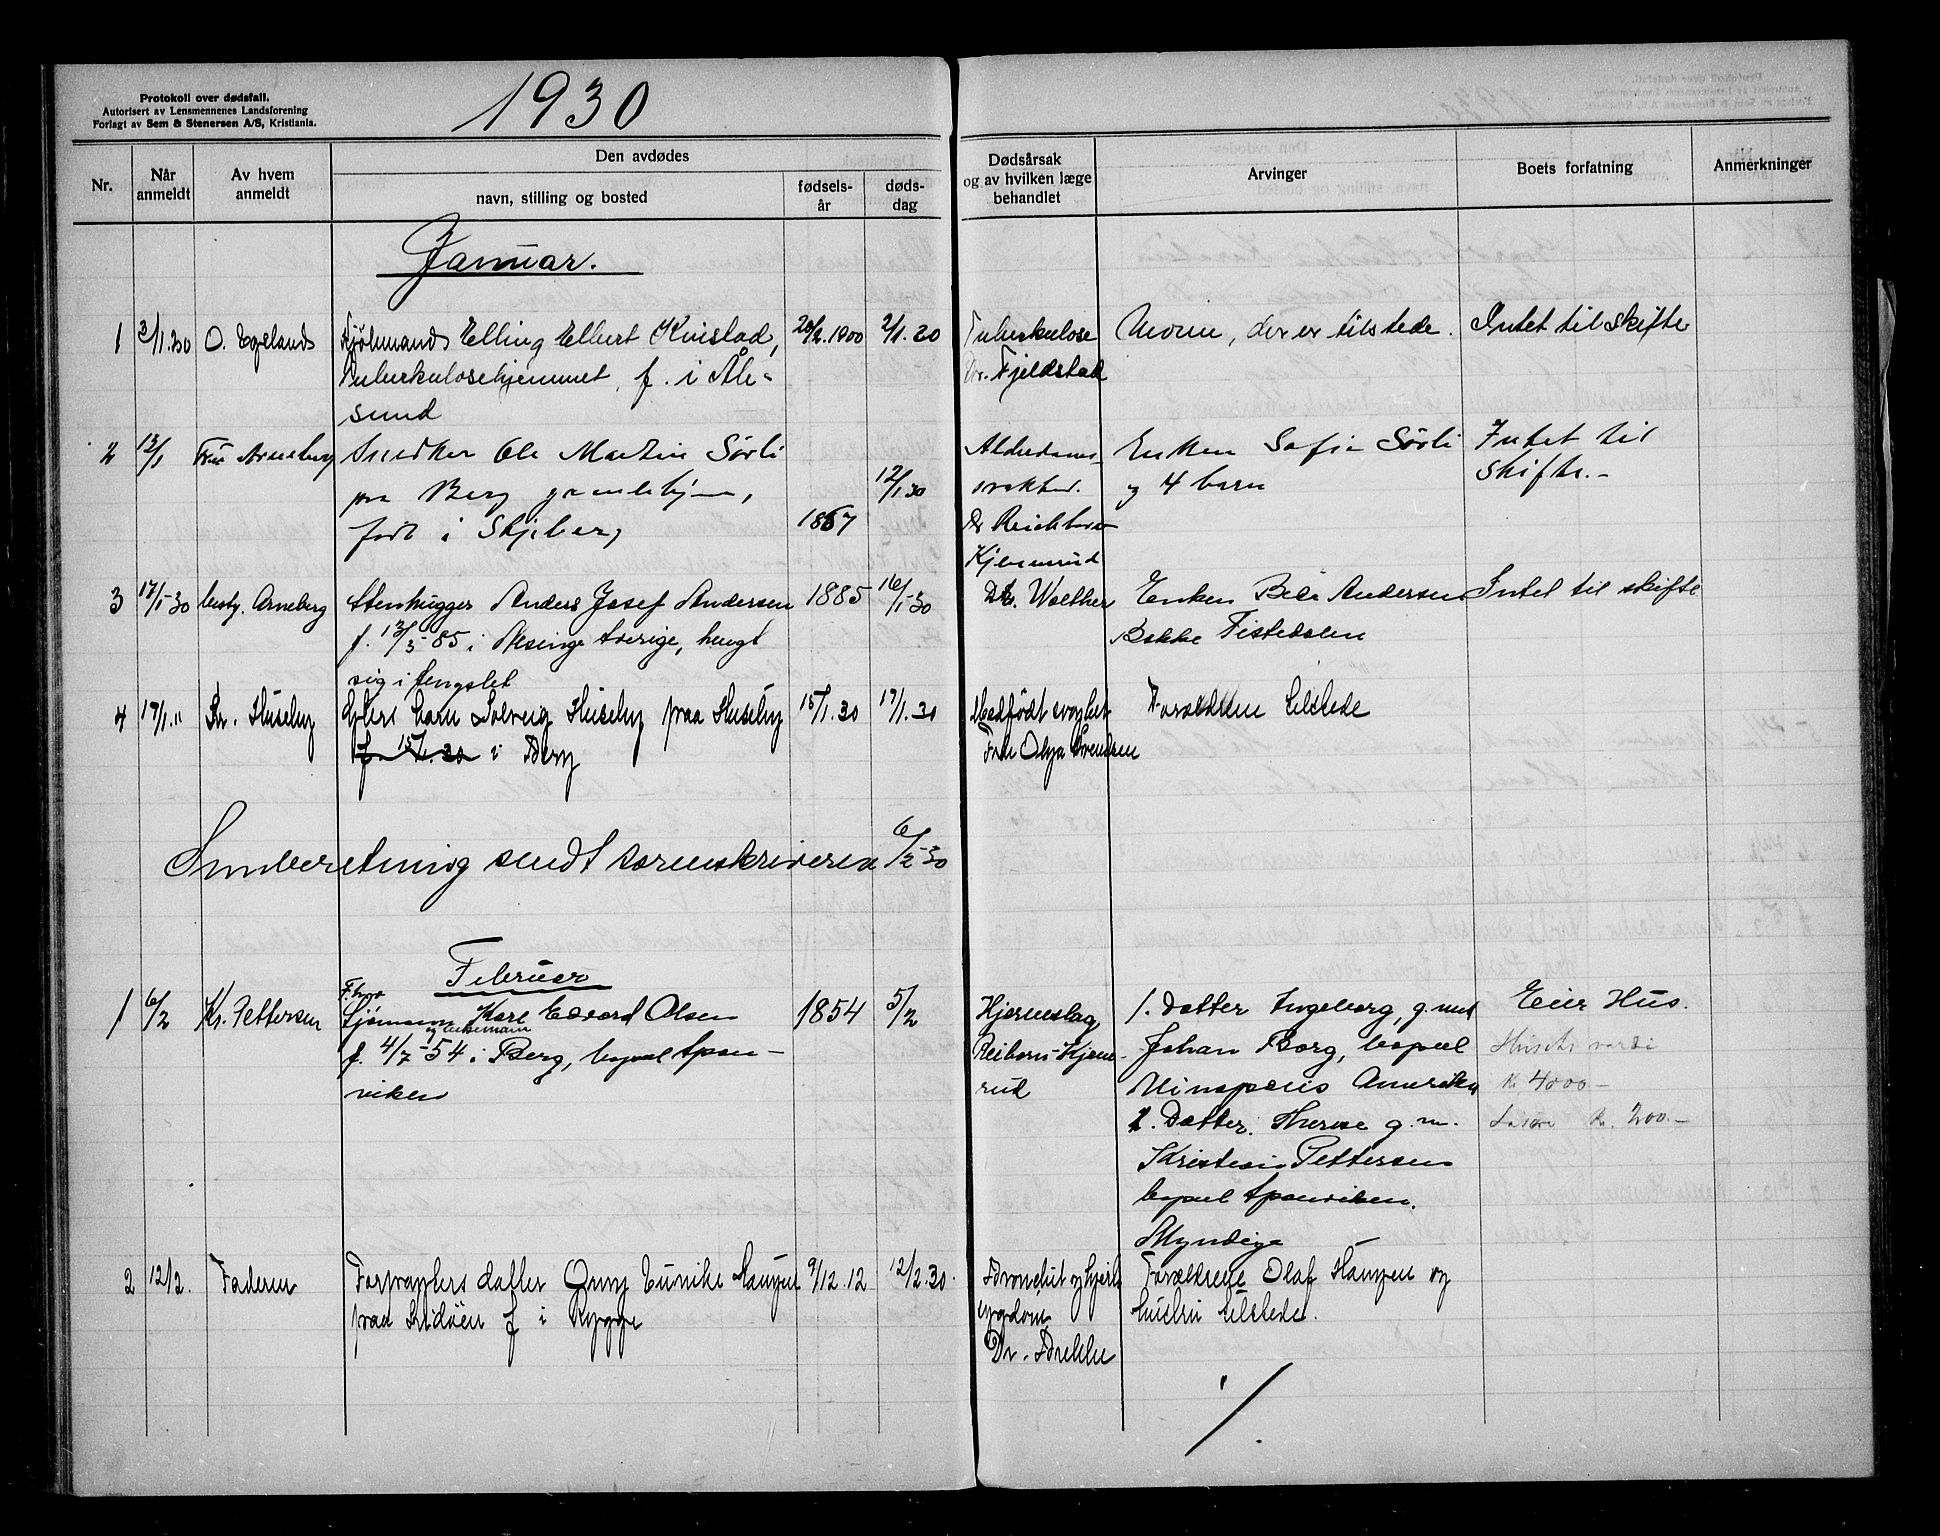 Protokoll over dødsfall.
Autorisert av Lensmennenes Landsforening
Forlagt av Sem & Stenersen A/S, Kristiania.
1930
Nr.
Når anmeldt
Av hvem anmeldt
Den avdødes
navn, stilling og bosted
fødselsår
dødsdag
Dødsårsak og av hvilken læge behandlet
Arvinger
Boets forfatning
Anmerkninger
Januar.
1 3/1.30 O. Egeland Sjømand Elling Elbert Kvistad, 20/2.1900 2/1.30 Tuberkulose Moren, der er tilstede. Intet til skifte
Tuberkulosehjemmet, f. i Åle- Dr. Fjeldstad
sund
2 13/1 Frk Arneberg Snedker Ole Martin Sørli Alderdoms- Enken Sofie Sørli Intet til
paa Berg gamlehjem, 12/1 30 svakhed. og 4 barn skifte.-
født i Skjeberg 1867 Dr Reichborn
Kjennerud
3 17/1-30 besty. Arneberg Stenhugger Anders Josef Andersen 1885 16/1-30 Dr. Walther Enken Andersen Intet til skifte
f. 13/5-85 i Sverige, hengt Bakke Tistedalen
sig i fengslet
4 17/1." Huseby barn Solveig Huseby paa Huseby 15/1.30 17/1.30 Medfødt svaghet Forældrene tilstede
f. 15/1.30 i Berg Fru Olga Svendsen
Innberetning sendt sorenskriveren 6/2-30
Februar
1 6/2 Kr. Pettersen F.hv. Sjømann Karl Edvard Olsen 1854 5/2 Hjerneslag 1. Datter Ingeborg, g. med Eier Hus.
og enkemann
f. 4/7-54 i Berg, bopæl Spon- Reiborn-Kjenne- Johan Borg, bopæl Husets verdi
viken rud Amerika Kr 4000-
2. Datter. Therese g.m. Løsøre Kr. 200.-
Kristian Pettersen
bopæl Sponviken.
Myndige
2 12/2. Faderen Forpagters datter Eunike Hansen 9/12.12 12/2.30. Bronchit og hjerte- Forældrene Olaf Hansen og
paa f i Rygge sygdom hustru tilstede.
Dr.